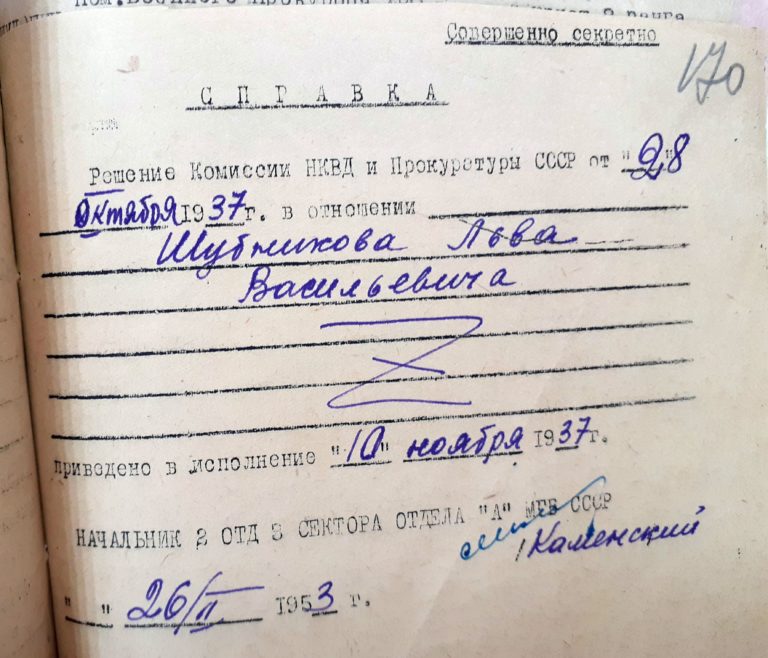 Пом.Военного Прокурора
2 ранга
Совершенно секретно
170
СПРАВКА
Решение Комиссии НКВД и Прокуратуры СССР от "28"
Октября 1937 г. в отношении
Шубникова Льва
Васильевича
приведено в исполнение "10" ноября 1937 г.
НАЧАЛЬНИК 2 ОТД 3 СЕКТОРА ОТДЕЛА "А" МГБ СССР
/Каменский
" " 26/II 1953 г.